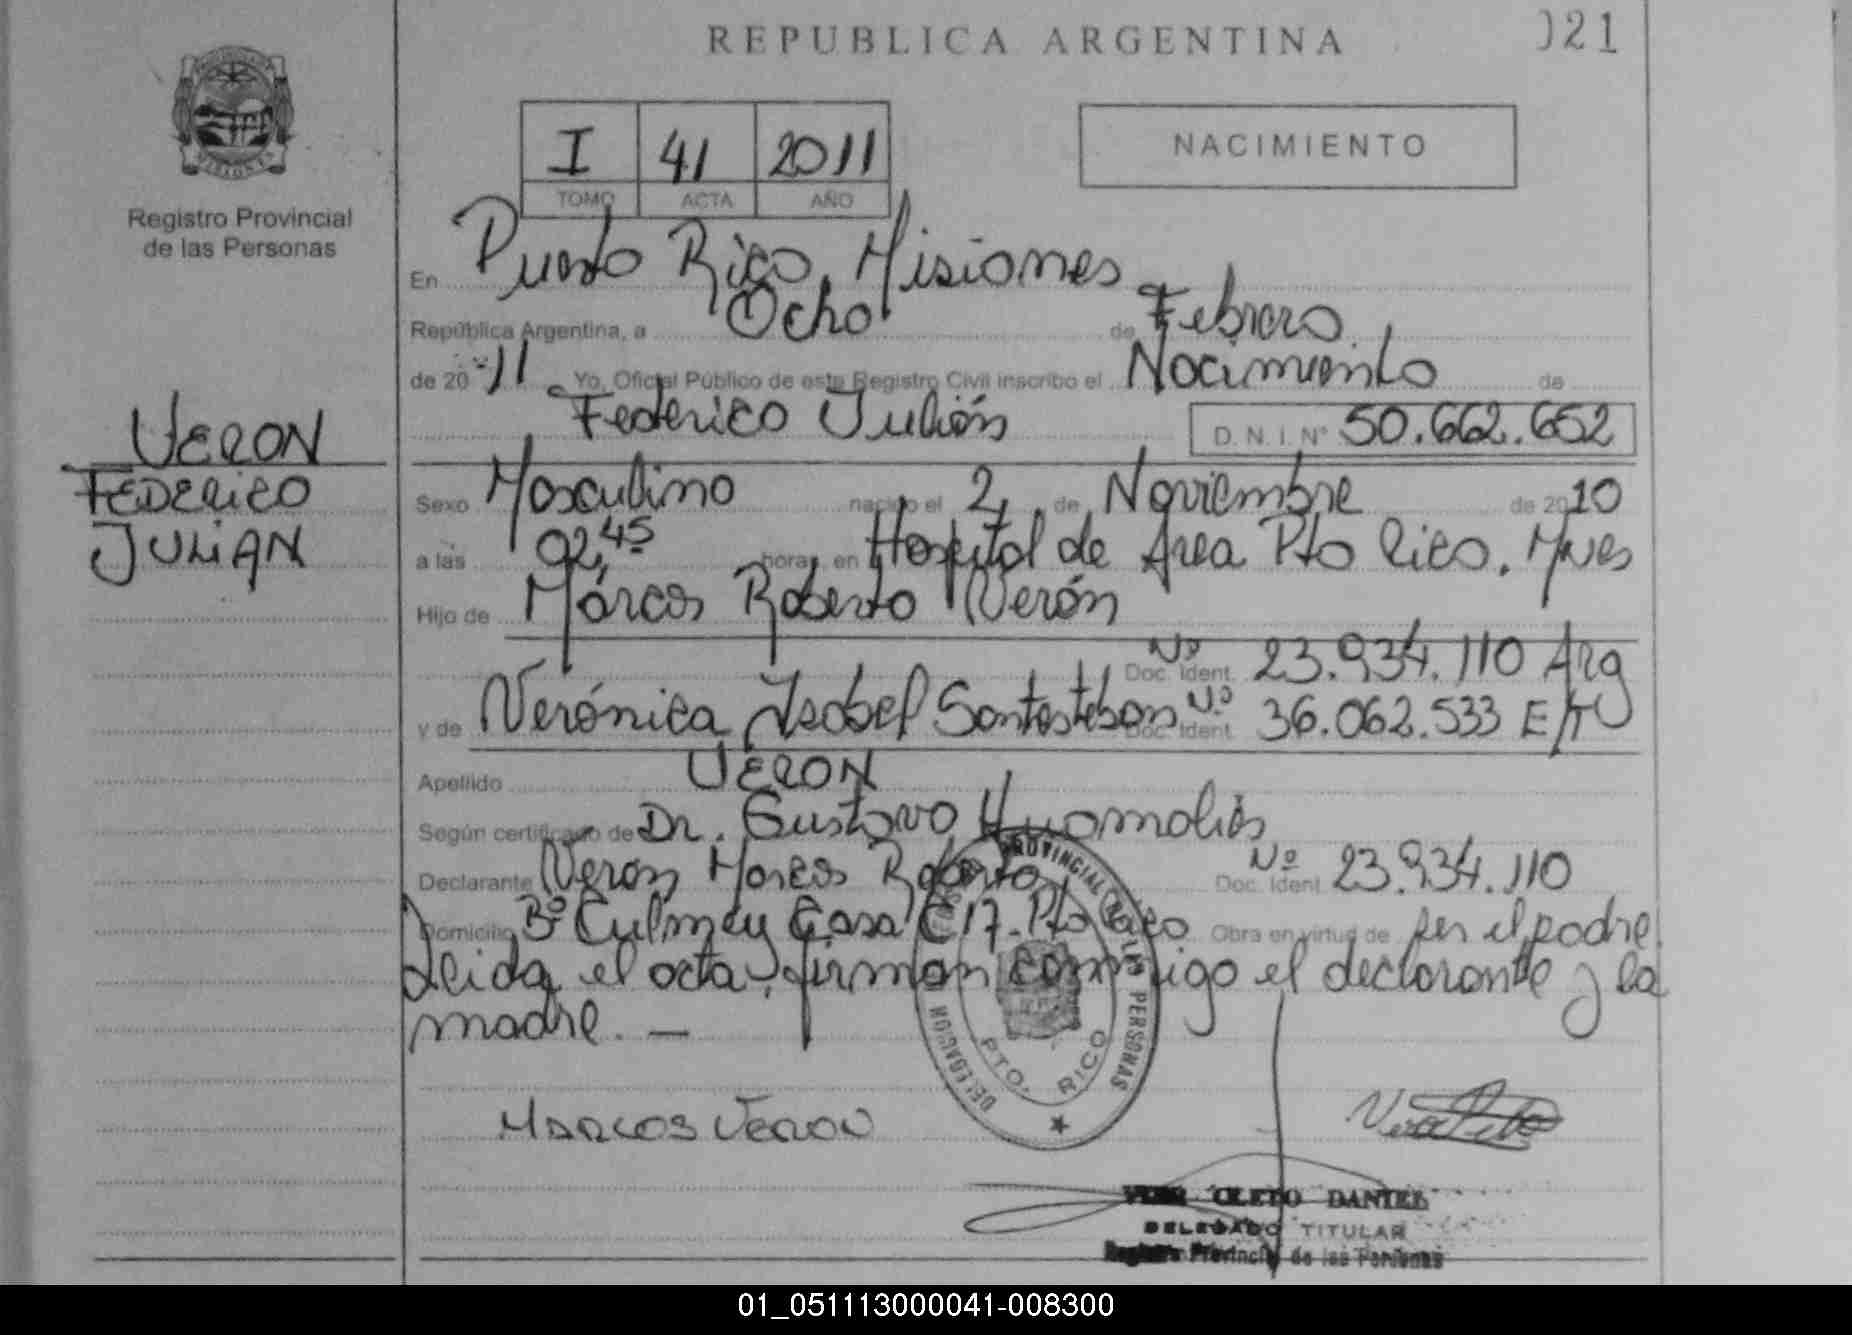 REPUBLICA ARGENTINA
021
I 41 2011
TOMO ACTA AÑO
NACIMIENTO
Registro Provincial
de las Personas
En Puerto Rico, Misiones
República Argentina, a Ocho de Febrero
de 20 11 Yo, Oficial Público de este Registro Civil inscribo el Nacimiento de
Federico Julián D.N.I.Nº 50.662.652
VERON
FEDERICO
JULIAN
Sexo Masculino nacido el 2 de Noviembre de 2010
a las 02,45 horas en Hospital de Area Pto Rico. Mnes
Hijo de Márcos Roberto Verón
Nº Doc. Ident. 23.934.110 Arg
y de Verónica Isabel Santesteban Nº Doc. Ident. 36.062.533 E/TU
Apellido VERON
Según certificado de Dr. Gustavo
Declarante Verón Marcos Roberto Nº Doc. Ident. 23.934.110
Domicilio Bº Culmey Casa C 17. Pto Rico Obra en virtud de ser el padre.
Leida el acta, firman conmigo el declarante y la
madre. —
PROVINCIAL DE LAS PERSONAS
DELEGACION
PTO. RICO
MARCOS VERON
OLETO DANIEL
DELEGADO TITULAR
Registro Provincial de las Personas
01_051113000041-008300